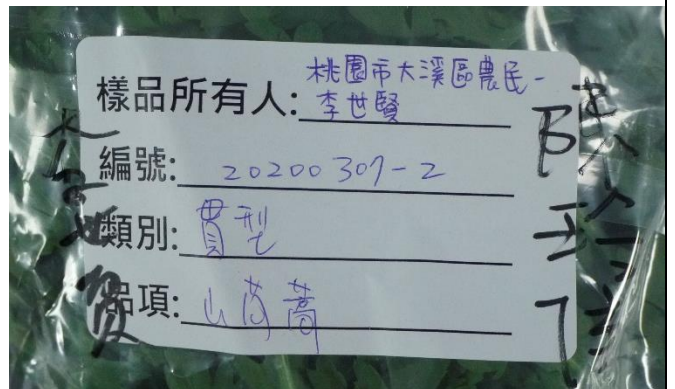 樣品所有人:桃園市大溪區農民-
李世賢
編號: 20200307-2
類別: 貫型
品項: 山茼蒿